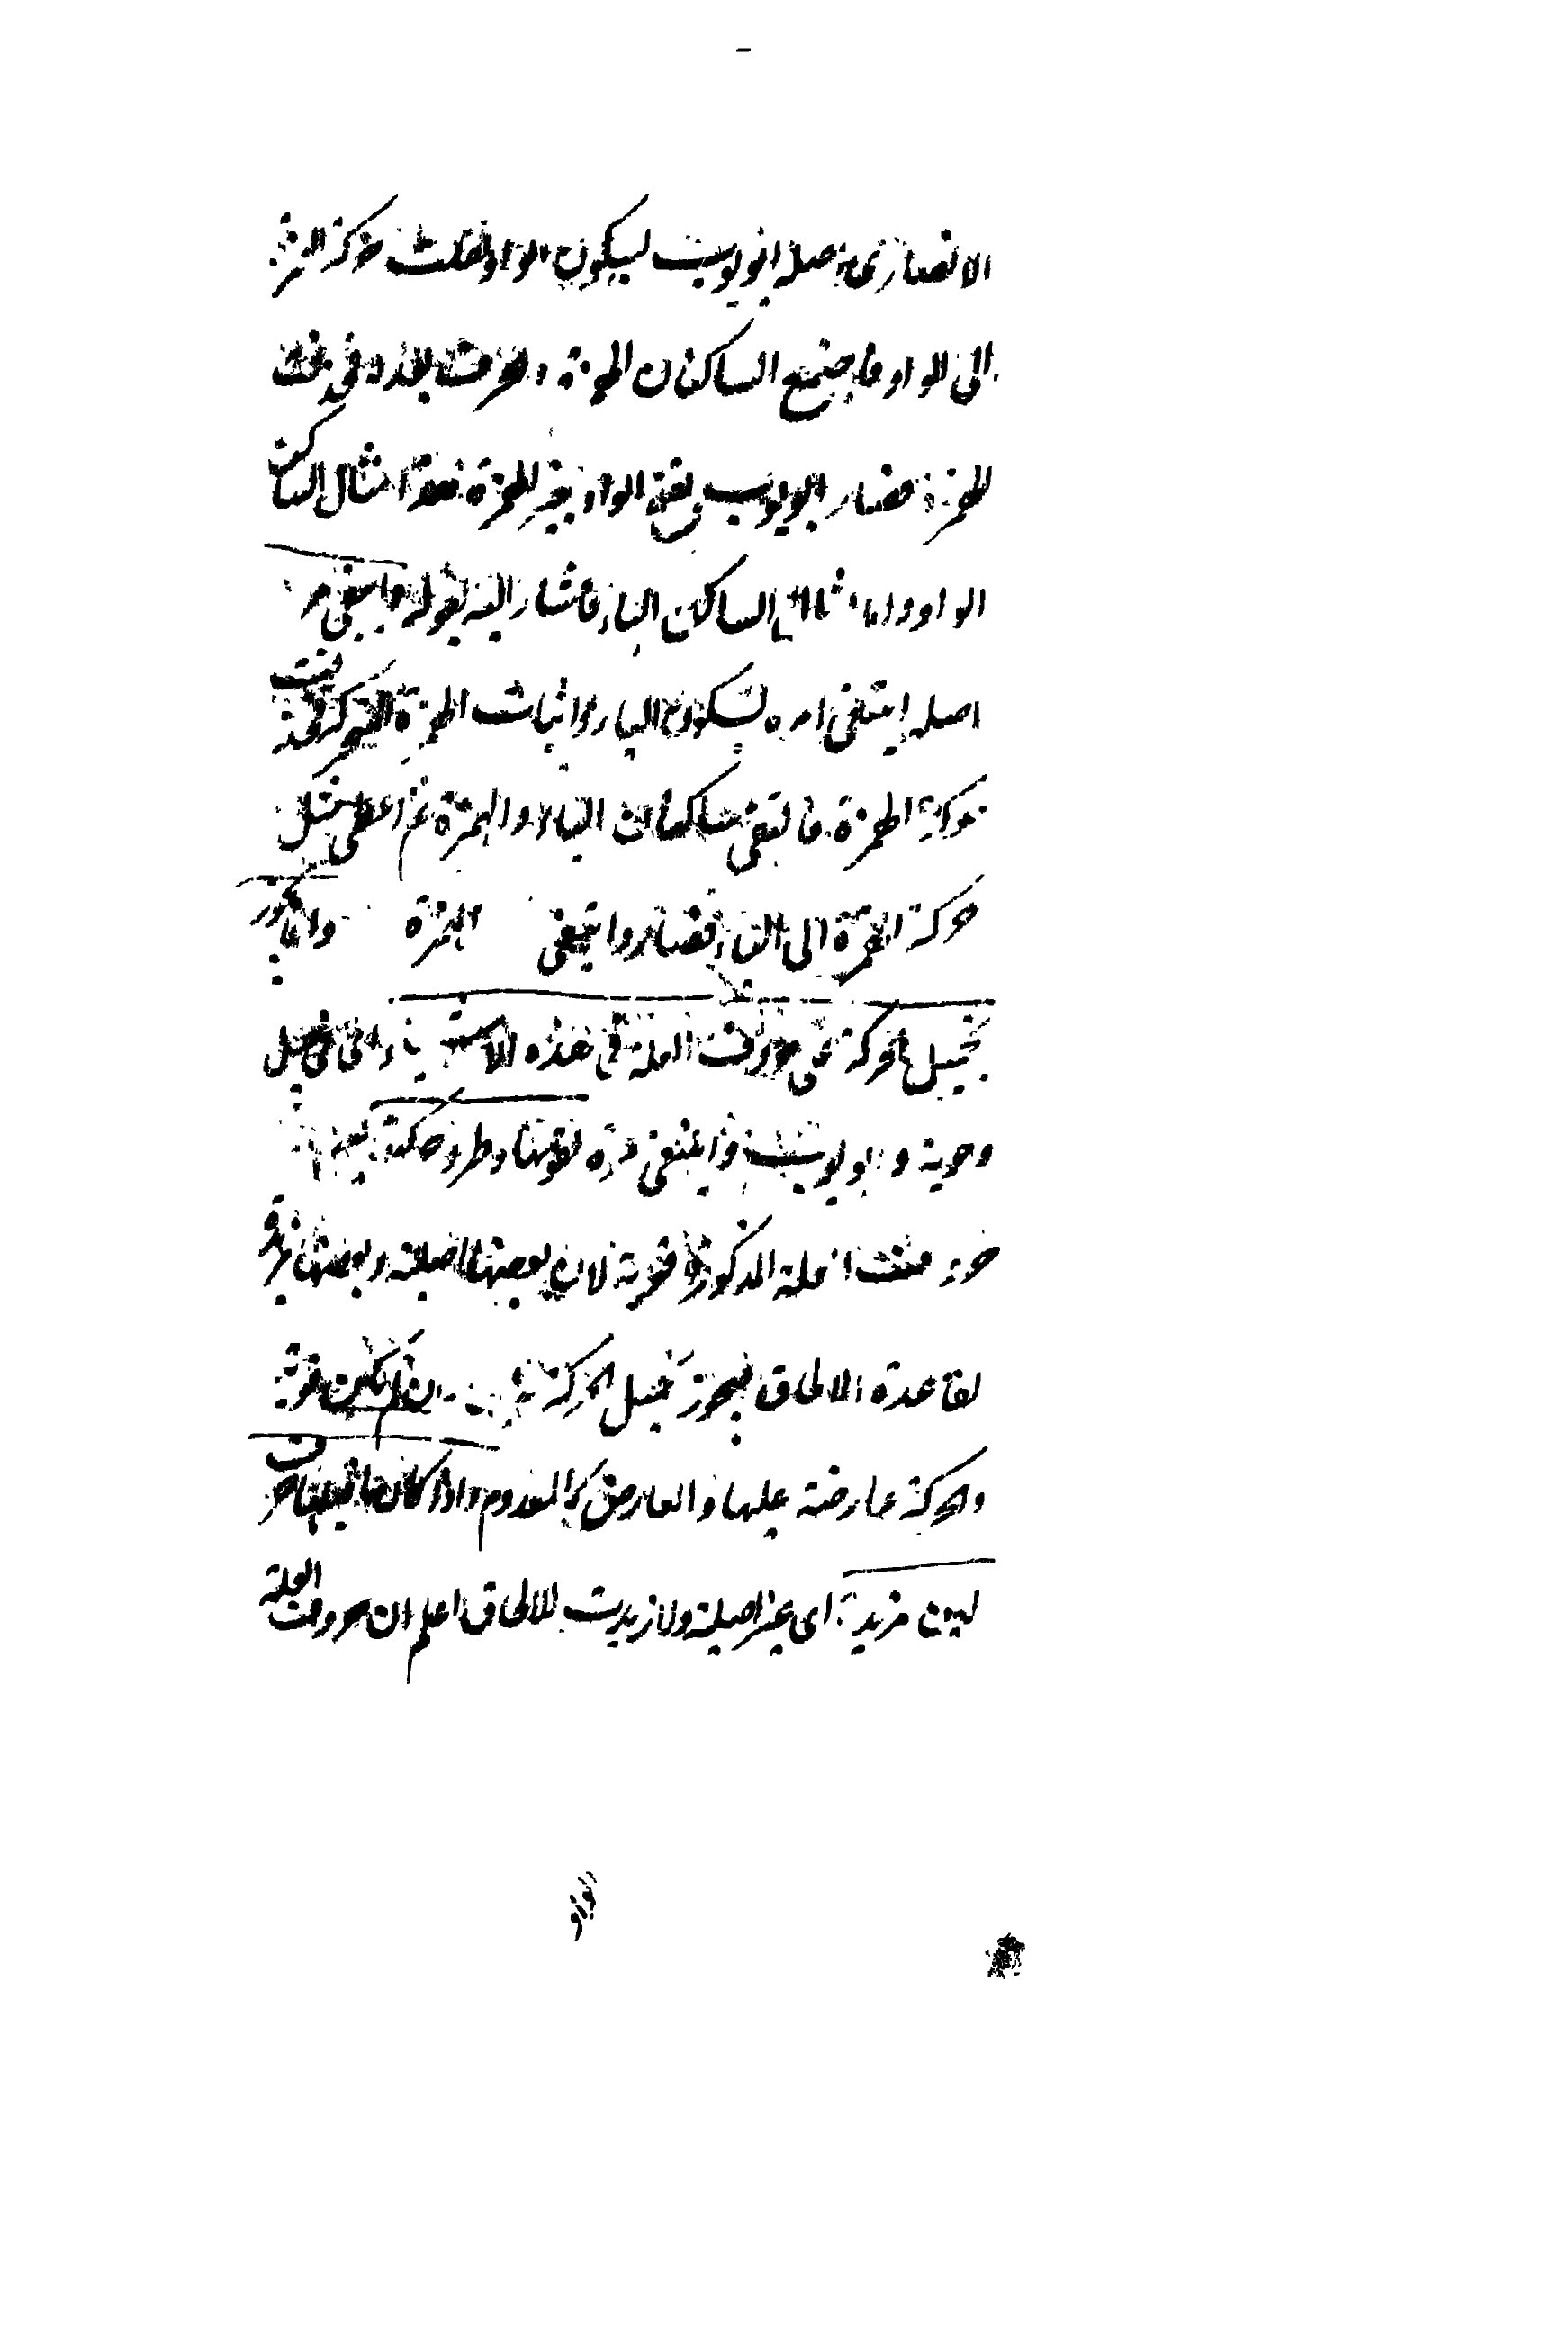 الانصاري اصله ابو ايوب ليكون الواو نقلت حركة الهمزة
الى الواو فاجتمع الساكنان الهمزة و فحذفت
الهمزة فصار ابويوب بفتح الواو بغير الهمزة هذا مثال الساكن
الواو واما مثال الساكن الياء فاشار اليه بقوله وابتغي مره
اصله ابتغي امره بسكون الياء واثبات الهمزة
حركة الهمزة فالتقى ساكنان الياء والهمزة ثم اعطي مثل
حركة الهمزة الى الياء فصار وابتغي الهمزة وانما يجوز
تحميل الحركة على حروف العلة في هذه الاشياء اي في جيل
وحوبة وابويوب وابتغي مره لقوتها وطرو حركة
حروف العلة المذكورة قوية لان بعضها اصلية وبعضها زيدة
لقاعدة الالحاق فيجوز تحميل الحركة وان لم يكن قوية
والحركة عارضة عليها والعارض كالمعدوم واذا كان ما قبلها حرف
لين مزيدة اي غير اصلية ولا زيدت للالحاق اعلم ان حروف العلة